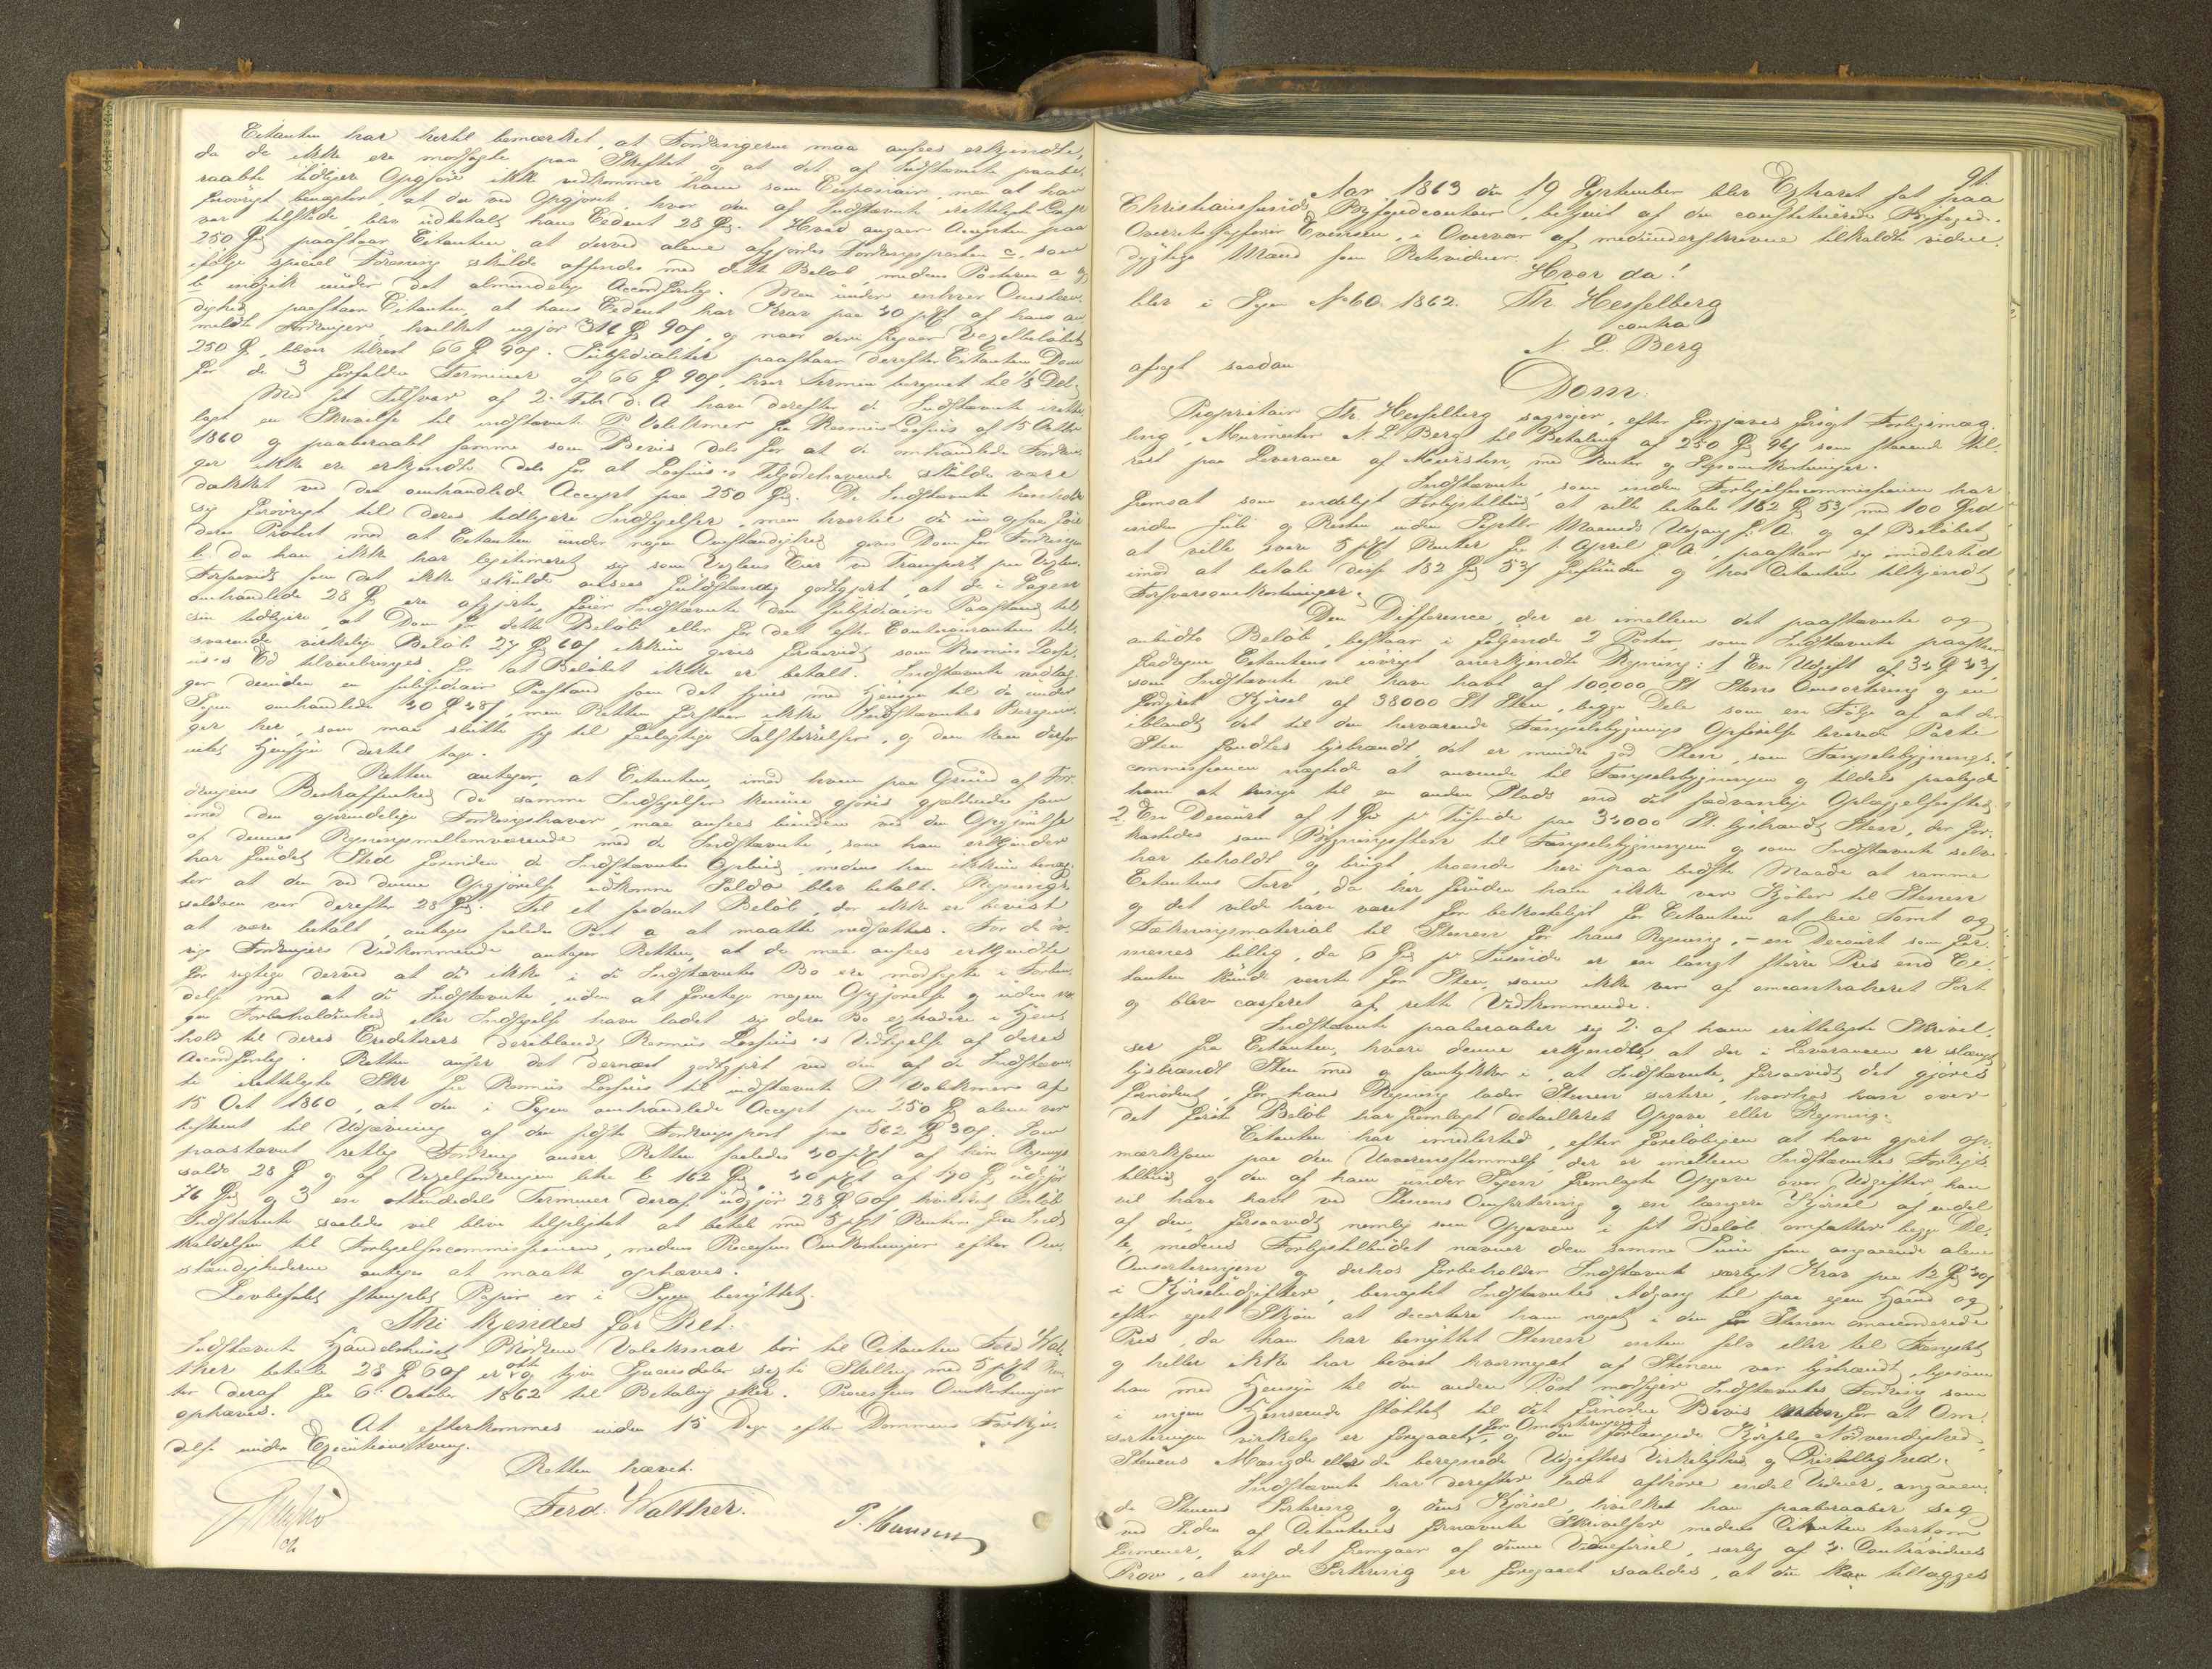 Citanten har hertil bemærket, at Fordringerne maa ansees erkjendte,
da de ikke ere modsagte paa Skiftet, og at det af Indstævnte paabe-
raabte tidligere Opgjør ikke vedkommer ham som Cessionair, men at han
forøvrigt benægter, at der ved Opgjøret, hvor den af Indstævnte irettelagte
var tilstede, blev udbetalt hans Cedent 28 Spd. Hvad angaar Accepten paa
250 Spd paastaar Citanten at derved alene afgjordes Fordringsposten c, som
ifølge speciel Forening skulde affindes med dette Beløb, medens Posterne a og
b indgik under det almindelige Accordforslag. Men under enhver Omstæn-
dighed paastaar Citanten, at hans Cedent har Krav paa 40 pCt af hans an-
meldte Fordringer, hvilket udgjør 316 Spd 90 s, og naar derfra drages Vexelbeløbet
250 Spd, bliver tilrest 66 Spd 90 s. Subsidialiter paastaar derefter Citanten Dom
for de 3 forfaldne Terminer af 66 Spd 90 s, hver Termin beregnet til 1/8 Del.
Med sit Tilsvar af 2. Febr d. A. have derefter de Indstævnte irette-
lagt en Skrivelse til indstævnte P Volckmar fra Rasmus Lossius af 15 Octbr
1860 og paaberaabt samme som Bevis dels for at de omhandlede Fordrin-
ger ikke ere erkjendte dels for at Lossius's Tilgodehavende skulde være
dækket ved den omhandlede Accept paa 250 Spd. De Indstævnte henholde
sig forøvrigt til deres tidligere Indsigelser, men hvortil de
deres Protest mod at Citanten under nogen Omstændighed gives Dom for Fordringen
b da han ikke har legitimeret sig som Vexlens Eier ved Transport paa Vexlen.
Forsaavidt som det ikke skulde ansees fuldstændig godtgjort, at de i Sagen
omhandlede 28 Spd ere afgjorte, føier Indstævnte den subsidiaire Paastand til
sin tidligere, at Dom for dette Beløb eller for det efter Contracitanten til-
svarende virkelige Beløb 27 Spd 60 s ikkun gives forsaavidt som Rasmus Lossi-
us's Ed tilveiebringes for at Beløbet ikke er betalt. Indstævnte nedlæg-
ger desuden en subsidiair Paastand som det synes med Hensyn til de under
Sagen omhandlede 40 Spd 48 s, men Retten forstaar ikke Indstævntes Beregnin-
ger her, som maa støtte sig til feilagtige Talstørrelser, og den kan derfor
intet Hensyn dertil tage.
Retten antager, at Citanten, imod hvem paa Grund af For-
dringens Beskaffenhed de samme Indsigelser kunne gjøres gjældende som
imod den oprindelige Fordringshaver, maa ansees bunden ved den Opgjørelse
af dennes Regningsmellemværende med de Indstævnte, som han erkjender
har fundet Sted forinden de Indstævntes Opbud, medens han ikkun benæg-
ter at den ved denne Opgjørelse udkomne Saldo blev betalt. Regnings-
saldoen var derefter 28 Spd. Til et saadant Beløb, der ikke er bevist
at være betalt, antages saaledes Post a at maatte nedsættes. For de øv-
rige Fordringers Vedkommende antager Retten, at de maa ansees erkjendte
for rigtige derved at de ikke i de Indstævntes Bo ere modsagte i Forbin-
delse med at de Indstævnte, uden at foretage nogen Opgjørelse og uden no-
gen Forbeholdenhed eller Indsigelse have ladet sig deres Bo extradere i Hen-
hold til deres Creditorers deriblandt Rasmus Lossius's Vedtagelse af deres
Accordforslag. Retten anser det dernæst godtgjort ved den af de Indstævn-
te irettelagte Skr fra Rasmus Lossius til indstævnte P. Volckmar af
15 Oct 1860, at den i Sagen omhandlede Accept paa 250 Spd alene var
bestemt til Udjævning af den sidste Fordringspost paa 562 Spd 30 s. Som
paastævnt retlig Fordring anser Retten saaledes 40 pCt af hiin Regnings
saldo 28 Spd og af Vexelfordringen litr b 162 Spd, 40 pCt af 190 Spd udgjør
76 Spd og 3 en ottendedels Terminer deraf udgjør 28 Spd 60 s, hvilket Beløb
Indstævnte saaledes vil blive tilpligtet at betale med 5 pCt Renter fra Ind-
kaldelsen til Forligelsescommissionen, medens Processens Omkostninger efter Om-
stændighederne antages at maatte ophæves.
Lovbefalet stemplet Papir er i Sagen benyttet.
Thi kjendes for Ret:
Indstævnte Handelshuset Brødrene Volckmar bør til Citanten Ferd Wal-
ther betale 28 Spd 60 s otte og tyve Speciedaler sexti Skilling med 5 pCt Ren-
ter deraf fra 6. October 1862 til Betaling skeer. Processens Omkostninger
ophæves.
At efterkommes inden 15 Dage efter Dommens Forkyn-
delse under Executionstvang.
Retten hævet.
Ferd. Walther.
P. Hansen
91.
Aar 1863 den 19 September blev Extraret sat paa
Christianssunds Byfogedcontoir, betjent af den constituerede Byfoged
Overretssagfører Evensen, i Overvær af medunderskrevne tilkaldte vidne-
dygtige Mænd som Retsvidner.
Hvor da!
blev i Sagen No 60. 1862. Th. Hesselberg
contra
N. L. Berg
afsagt saadan
Dom:
Proprietair Th. Hesselberg sagsøger, efter forgjæves forsøgt Forligsmæg-
ling, Murmester N. L. Berg til Betaling af 250 Spd 96 s som staaende til-
rest paa Leverance af Mursten, med Renter og Sagsomkostninger.
Indstævnte, som inden Forligelsescommissionen har
fremsat som endeligt Forligstilbud at ville betale 182 Spd 53 s med 100 Spd
inden Juli og Resten inden Septbr Maaneds Udgang f. A. og af Beløbet
at ville svare 5 pCt Renter fra 1. April f. A., paastaar sig imidlertid
imod at betale disse 182 Spd 53 s frifunden og hos Citanten tilkjendt
Forsvarsomkostninger.
Den Difference, der er imellem det paastævnte og
anbudte Beløb, bestaar i følgende 2 Poster, som Indstævnte paastaar
fradragne Citantens iøvrigt anerkjendte Regning: 1 En Udgift af 34 Spd 43 s,
som Indstævnte vil have havt af 100,000 St Stens Omsortering og en
forøget Kjørsel af 38000 St Sten, begge Dele som en Følge af at der
iblandt det til den herværende Fængselsbygnings Opførelse leverede Parti
Sten fandtes løsbrændt, det er mindre god Sten, som Fængselsbygnings-
commissionen nægtede at anvende til Fængselsbygningen og tildels paalagde
ham at bringe til en anden Plads end det sædvanlige Oplægssted
2. En Decourt af 1 Spd pr Tusinde paa 34000 St. løsbrændt Sten, der for-
kastedes som Bygningssten til Fængselsbygningen og som Indstævnte selv
har beholdt og brugt, troende heri paa bedste Maade at ramme
Citantens Tarv, da her foruden ham ikke var Kjøber til Stenen
og det vilde have været for bekosteligt for Citanten at leie Tomt og
Tækningsmaterial til Stenen for hans Regning, – en Decourt som for-
menes billig, da 6 Spd pr Tusinde er en langt større Pris end Ci-
tanten kunde vente for Sten, som ikke var af omcontraheret Sort
og blev casseret af rette Vedkommende.
Indstævnte paaberaaber sig 2 af ham irettelagte Skrivel-
ser fra Citanten, hvori denne erkjendte at der i Leverancen er slængt
løsbrændt Sten med og samtykker i, at Indstævnte, forsaavidt det gjøres
fornødent, for hans Regning lader Stenen sortere, hvorhos han over
det første Beløb har fremlagt detailleret Opgave eller Regning.
Citanten har imidlertid, efter foreløbigen at have gjort op-
mærksom paa den Uoverensstemmelse, der er imellem Indstævntes Forligs-
tilbud og den af ham under Sagen fremlagte Opgave over Udgifter, han
vil have havt ved Stenens Omsortering og en længere Kjørsel af endel
af den, forsaavidt nemlig som Opgaven i sit Beløb omfatter begge De-
le, medens Forligstilbudet nævner den samme Sum som angaaende alene
Omsorteringen og derhos forbeholder Indstævnte særligt Krav paa 12 Spd 40 s
i Kjørseludgifter, benægtet Indstævntes Adgang til paa egen Haand og
efter eget Skjøn at decortere ham noget i den for Stenen omaccorderede
Pris, da han har benyttet Stenen enten selv eller til Fængslet
og heller ikke har bevist hvormeget af Stenen var løsbrændt, ligesom
han med Hensyn til den anden Post modsiger Indstævntes Fordring som
i ingen Henseende støttet til det fornødne Bevis for at Om-
sorteringen virkelig er foregaaet, for Omsorteringens og den forlængede Kjørsels Nødvendighed,
Stenens Mængde eller de beregnede Udgifters Virkelighed og Prisbillighed.
Indstævnte har derefter ladet afhøre endel Vidner, angaaen-
de Stenens Sortering og dens Kjørsel, hvilket han paaberaaber sig
ved Siden af Citantens førnævnte Skrivelser medens Citanten tvertom
formener, at det fremgaar af denne Vidneførsel, særlig af 3. Contravidnes
Prov, at ingen Sortering er foregaaet saaledes, at der kan tillægges